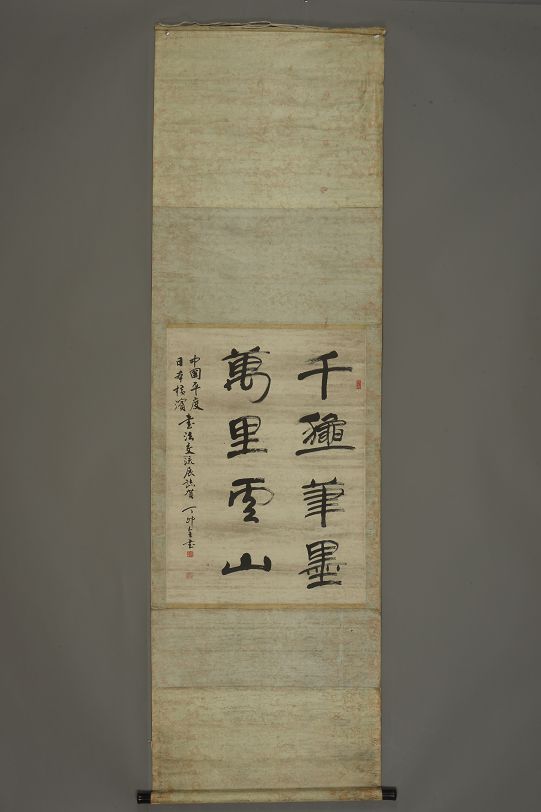 千龝笔墨
萬里雲山
中國平度
日本橫濱
書法交流展誌賀 丁卯
書